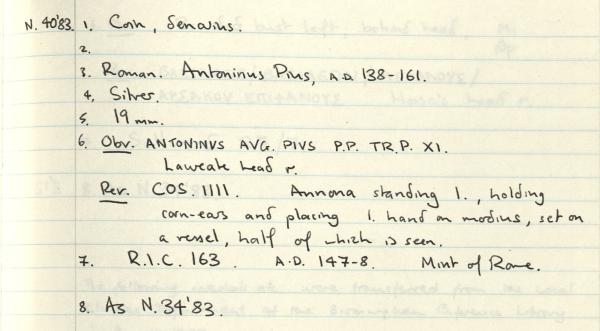 N. 40'83. 1. Coin, denarius.
2.
3. Roman. Antoninus Pius, A.D. 138-161.
4. Silver.
5. 19 mm.
6. Obv. ANTONINVS AVG. PIVS P.P. TR.P. XI.
Laureate head r.
Rev. COS. IIII. Annona standing l., holding
corn-ears and placing l. hand on modius, set on
a vessel, half of which is seen.
7. R.I.C. 163. A.D. 147-8. Mint of Rome.
8. As N. 34'83.